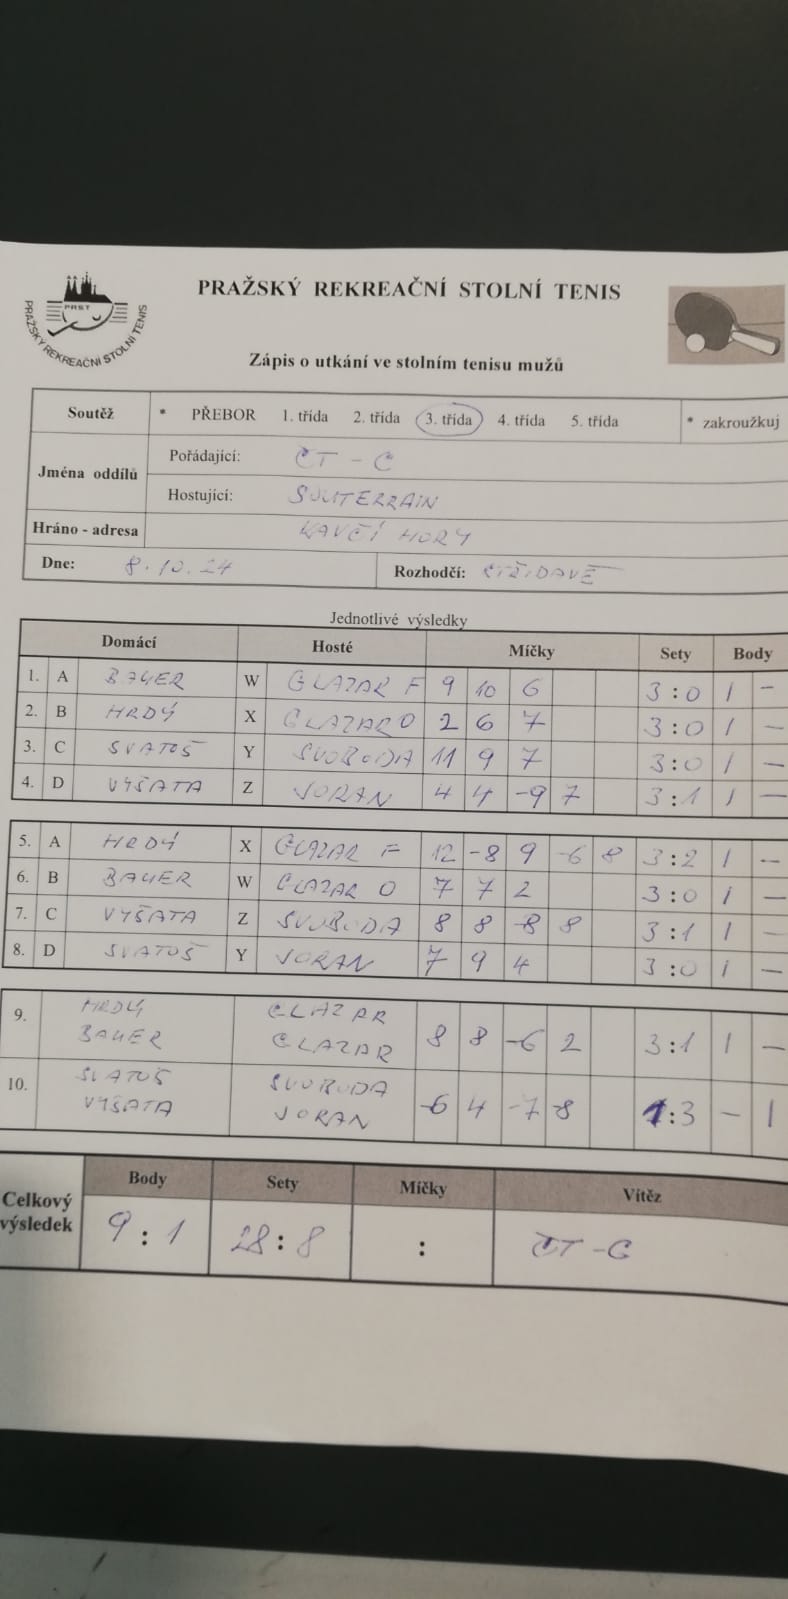 PRAŽSKÝ REKREAČNÍ STOLNÍ TENIS
PRST
PRAŽSKÝ REKREAČNÍ STOLNÍ TENIS
Zápis o utkání ve stolním tenisu mužů
Soutěž * PŘEBOR 1. třída 2. třída 3. třída 4. třída 5. třída * zakroužkuj
Jména oddílů
Pořádající: ČT - C
Hostující: SOUTERRAIN
Hráno - adresa KAVČÍ HORY
Dne: 8.10.24 Rozhodčí: STŘÍDAVĚ
Jednotlivé výsledky
Domácí Hosté Míčky Sety Body
1. A BAUER W GLAZAR F 9 10 6 3:0 1 -
2. B HRDÝ X GLAZAR O 2 6 7 3:0 1 -
3. C SVATOŠ Y SVOBODA 11 9 7 3:0 1 -
4. D VYŠATA Z JORAN 4 4 -9 7 3:1 1 -
5. A HRDÝ X GLAZAR F 12 -8 9 -6 8 3:2 1 -
6. B BAUER W GLAZAR O 7 7 2 3:0 1 -
7. C VYŠATA Z SVOBODA 8 8 -8 8 3:1 1 -
8. D SVATOŠ Y JORAN 7 9 4 3:0 1 -
9. HRDÝ GLAZAR
BAUER GLAZAR 8 8 -6 2 3:1 1 -
10. SVATOŠ SVOBODA
VYŠATA JORAN -6 4 -7 -8 1:3 - 1
Celkový výsledek
Body Sety Míčky Vítěz
9 : 1 28 : 8 : ČT - C